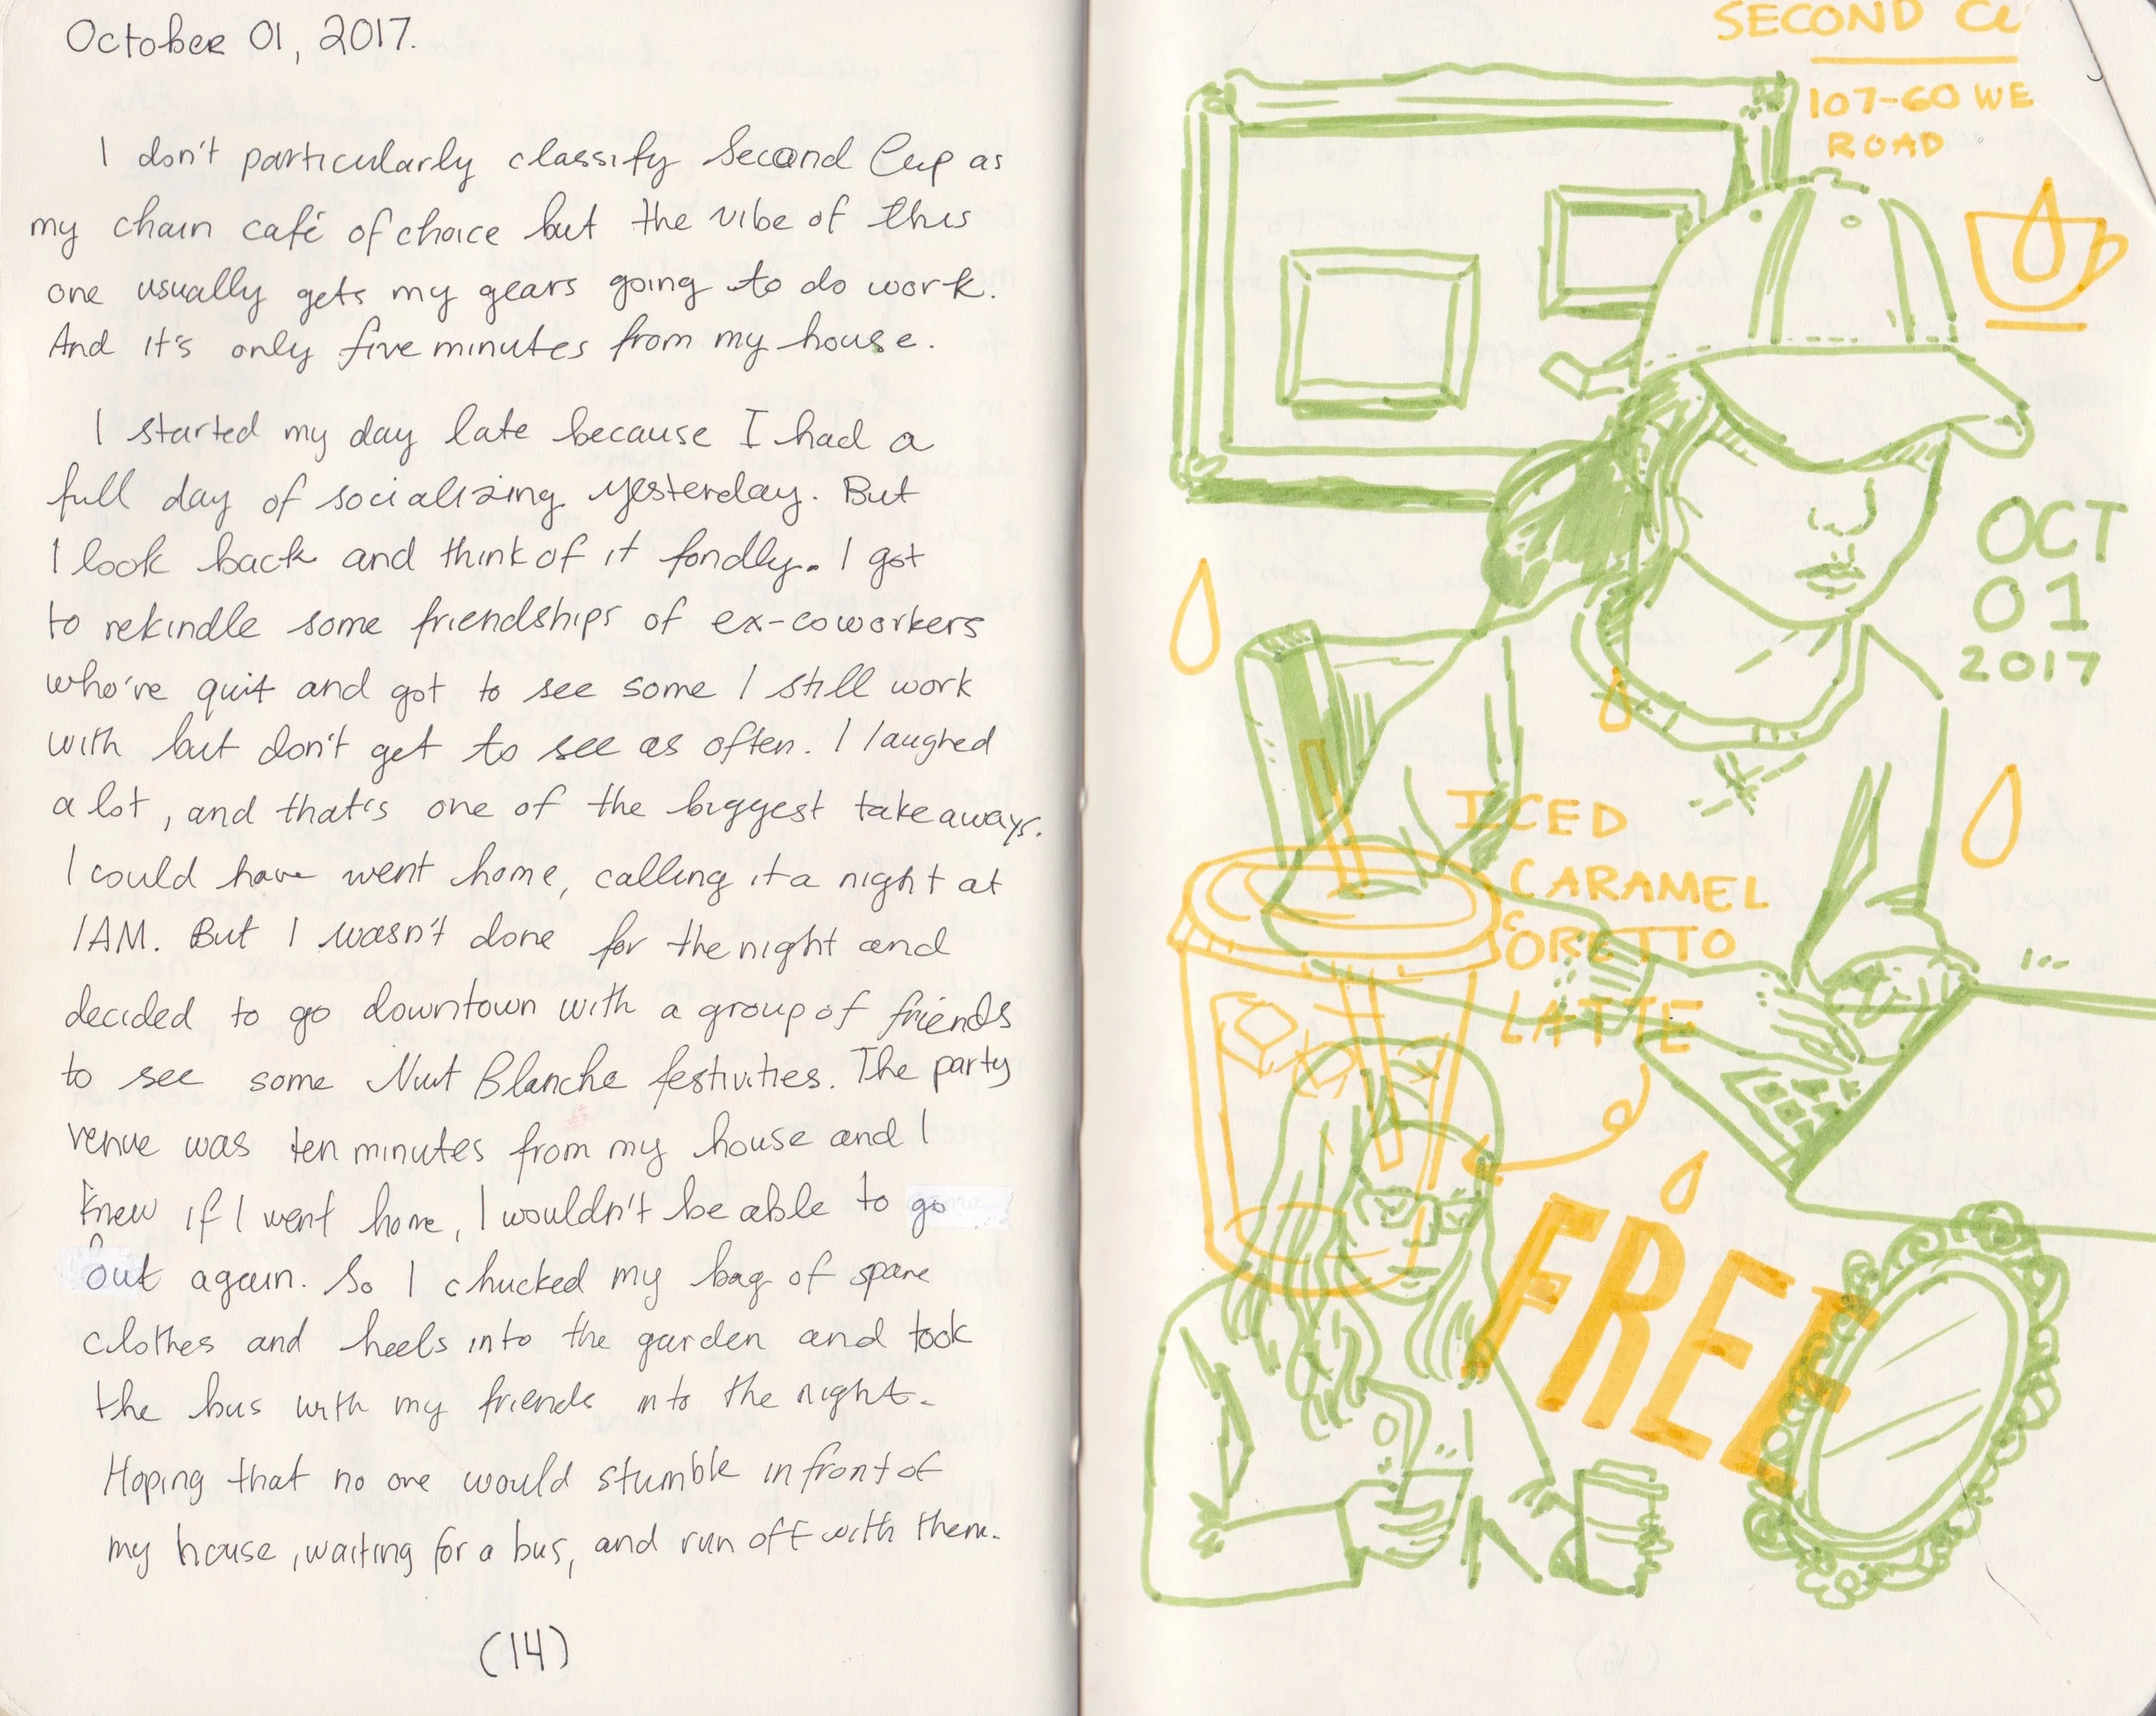 October 01, 2017.
I don't particularly classify Second Cup as
my chain café of choice but the vibe of this
one usually gets my gears going to do work.
And it's only five minutes from my house.
I started my day late because I had a
full day of socializing yesterday. But
I look back and think of it fondly. I got
to rekindle some friendships of ex-coworkers
who've quit and got to see some I still work
with but don't get to see as often. I laughed
a lot, and that's one of the biggest takeaways.
I could have went home, calling it a night at
1AM. But I wasn't done for the night and
decided to go downtown with a group of friends
to see some Nuit Blanche festivities. The party
venue was ten minutes from my house and I
knew if I went home, I wouldn't be able to go
out again. So I chucked my bag of spare
clothes and heels into the garden and took
the bus with my friends into the night.
Hoping that no one would stumble in front of
my house, waiting for a bus, and run off with them.
(14)
SECOND CU
107-60 WE
ROAD
OCT
01
2017
ICED
CARAMEL
CORETTO
LATTE
FREE